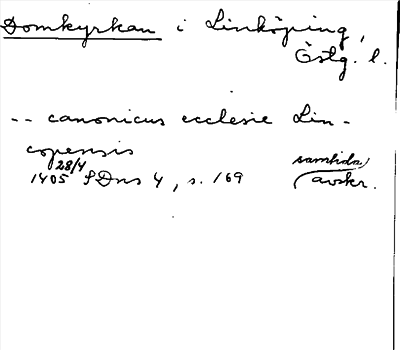 Domkyrkan i Linköping,
Östg. l.
-- canonicus ecclesie Lin-
copensis
28/4
1405 SDns 4, s. 169 (samtida avskr.